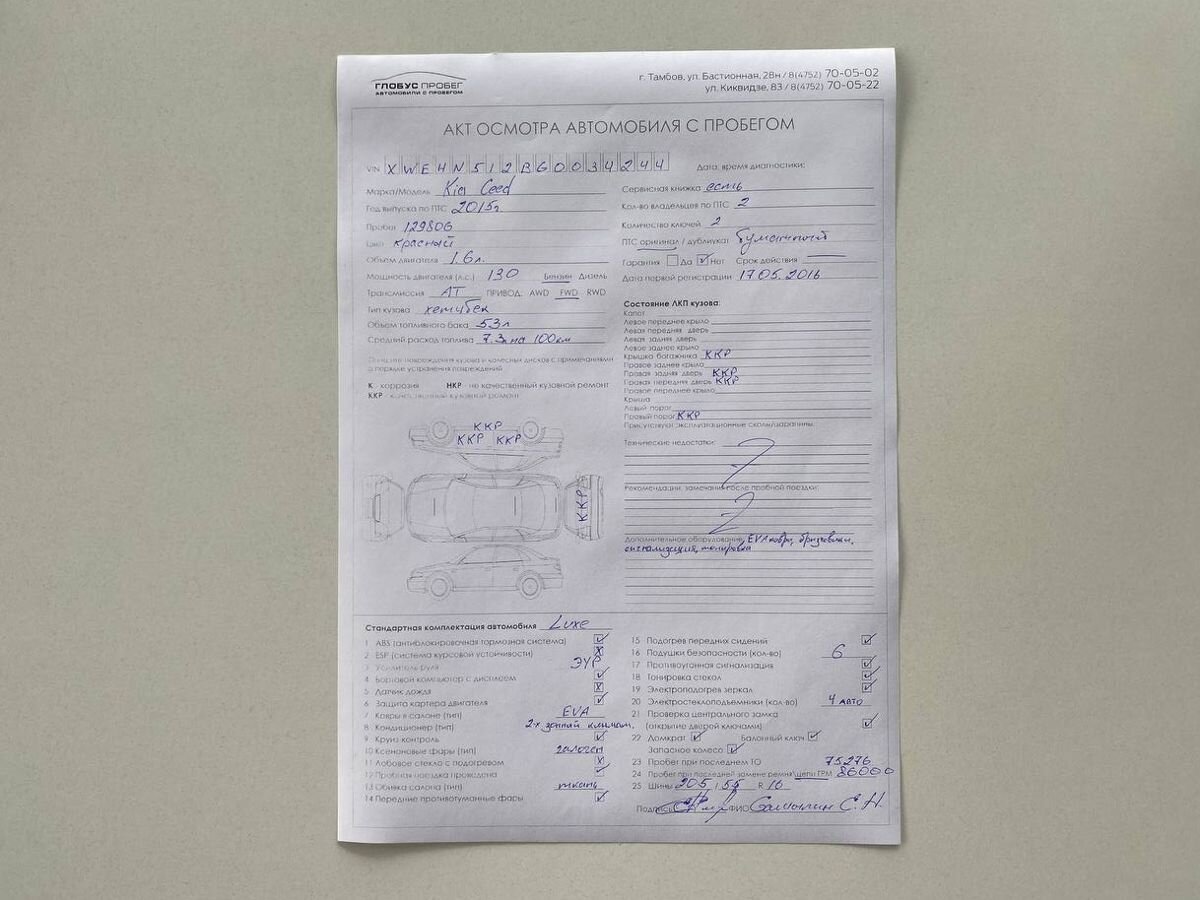 ГЛОБУС ПРОБЕГ
АВТОМОБИЛИ С ПРОБЕГОМ
г. Тамбов, ул. Бастионная, 28н / 8(4752) 70-05-02
ул. Киквидзе, 83 / 8(4752) 70-05-22
АКТ ОСМОТРА АВТОМОБИЛЯ С ПРОБЕГОМ
VIN XWEHN512BG0034244
Марка/Модель Kia Ceed
Год выпуска по ПТС 2015г
Пробег 129806
Цвет красный
Объем двигателя 1.6л.
Мощность двигателя (л.с.) 130 Бензин Дизель
Трансмиссия АТ ПРИВОД: AWD FWD RWD
Тип кузова хетчбек
Объем топливного бака 53л
Средний расход топлива 7.3л на 100км
Внешние повреждения кузова и колесных дисков с примечаниями
о порядке устранения повреждений
К - коррозия НКР - не качественный кузовной ремонт
ККР - качественный кузовной ремонт
ККР
ККР ККР
ККР
Дата, время диагностики:
Сервисная книжка есть
Кол-во владельцев по ПТС 2
Количество ключей 2
ПТС оригинал / дубликат бумажный
Гарантия Да Нет Срок действия
Дата первой регистрации 17.05.2016
Состояние ЛКП кузова:
Капот
Левое переднее крыло
Левая передняя дверь
Левая задняя дверь
Левое заднее крыло
Крышка багажника ККР
Правое заднее крыло
Правая задняя дверь ККР
Правая передняя дверь ККР
Правое переднее крыло
Крыша
Левый порог
Правый порог ККР
Присутствуют эксплуатационные сколы/царапины
Технические недостатки:
Рекомендации, замечания после пробной поездки:
Дополнительное оборудование EVA ковры, брызговики,
сигнализация, тонировка
Стандартная комплектация автомобиля Luxe
1 ABS (антиблокировочная тормозная система)
2 ESP (система курсовой устойчивости)
3 Усилитель руля ЭУР
4 Бортовой компьютер с дисплеем
5 Датчик дождя
6 Защита картера двигателя
7 Ковры в салоне (тип) EVA
8 Кондиционер (тип) 2-х зонный климат.
9 Круиз контроль
10 Ксеноновые фары (тип) галоген
11 Лобовое стекло с подогревом
12 Пробная поездка проведена
13 Обивка салона (тип) ткань
14 Передние противотуманные фары
15 Подогрев передних сидений
16 Подушки безопасности (кол-во) 6
17 Противоугонная сигнализация
18 Тонировка стекол
19 Электроподогрев зеркал
20 Электростеклоподъемники (кол-во) 4 авто
21 Проверка центрального замка
(открытие дверей ключами)
22 Домкрат Балонный ключ
Запасное колесо
23 Пробег при последнем ТО 75276
24 Пробег при последней замене ремня\цепи ГРМ 86000
25 Шины 205 / 55 R 16
Подпись ФИО С.Н.